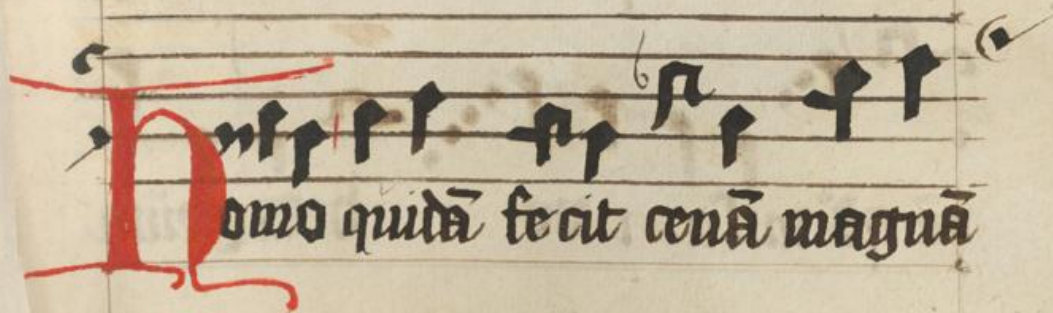 Homo quidā fecit cenā magnā